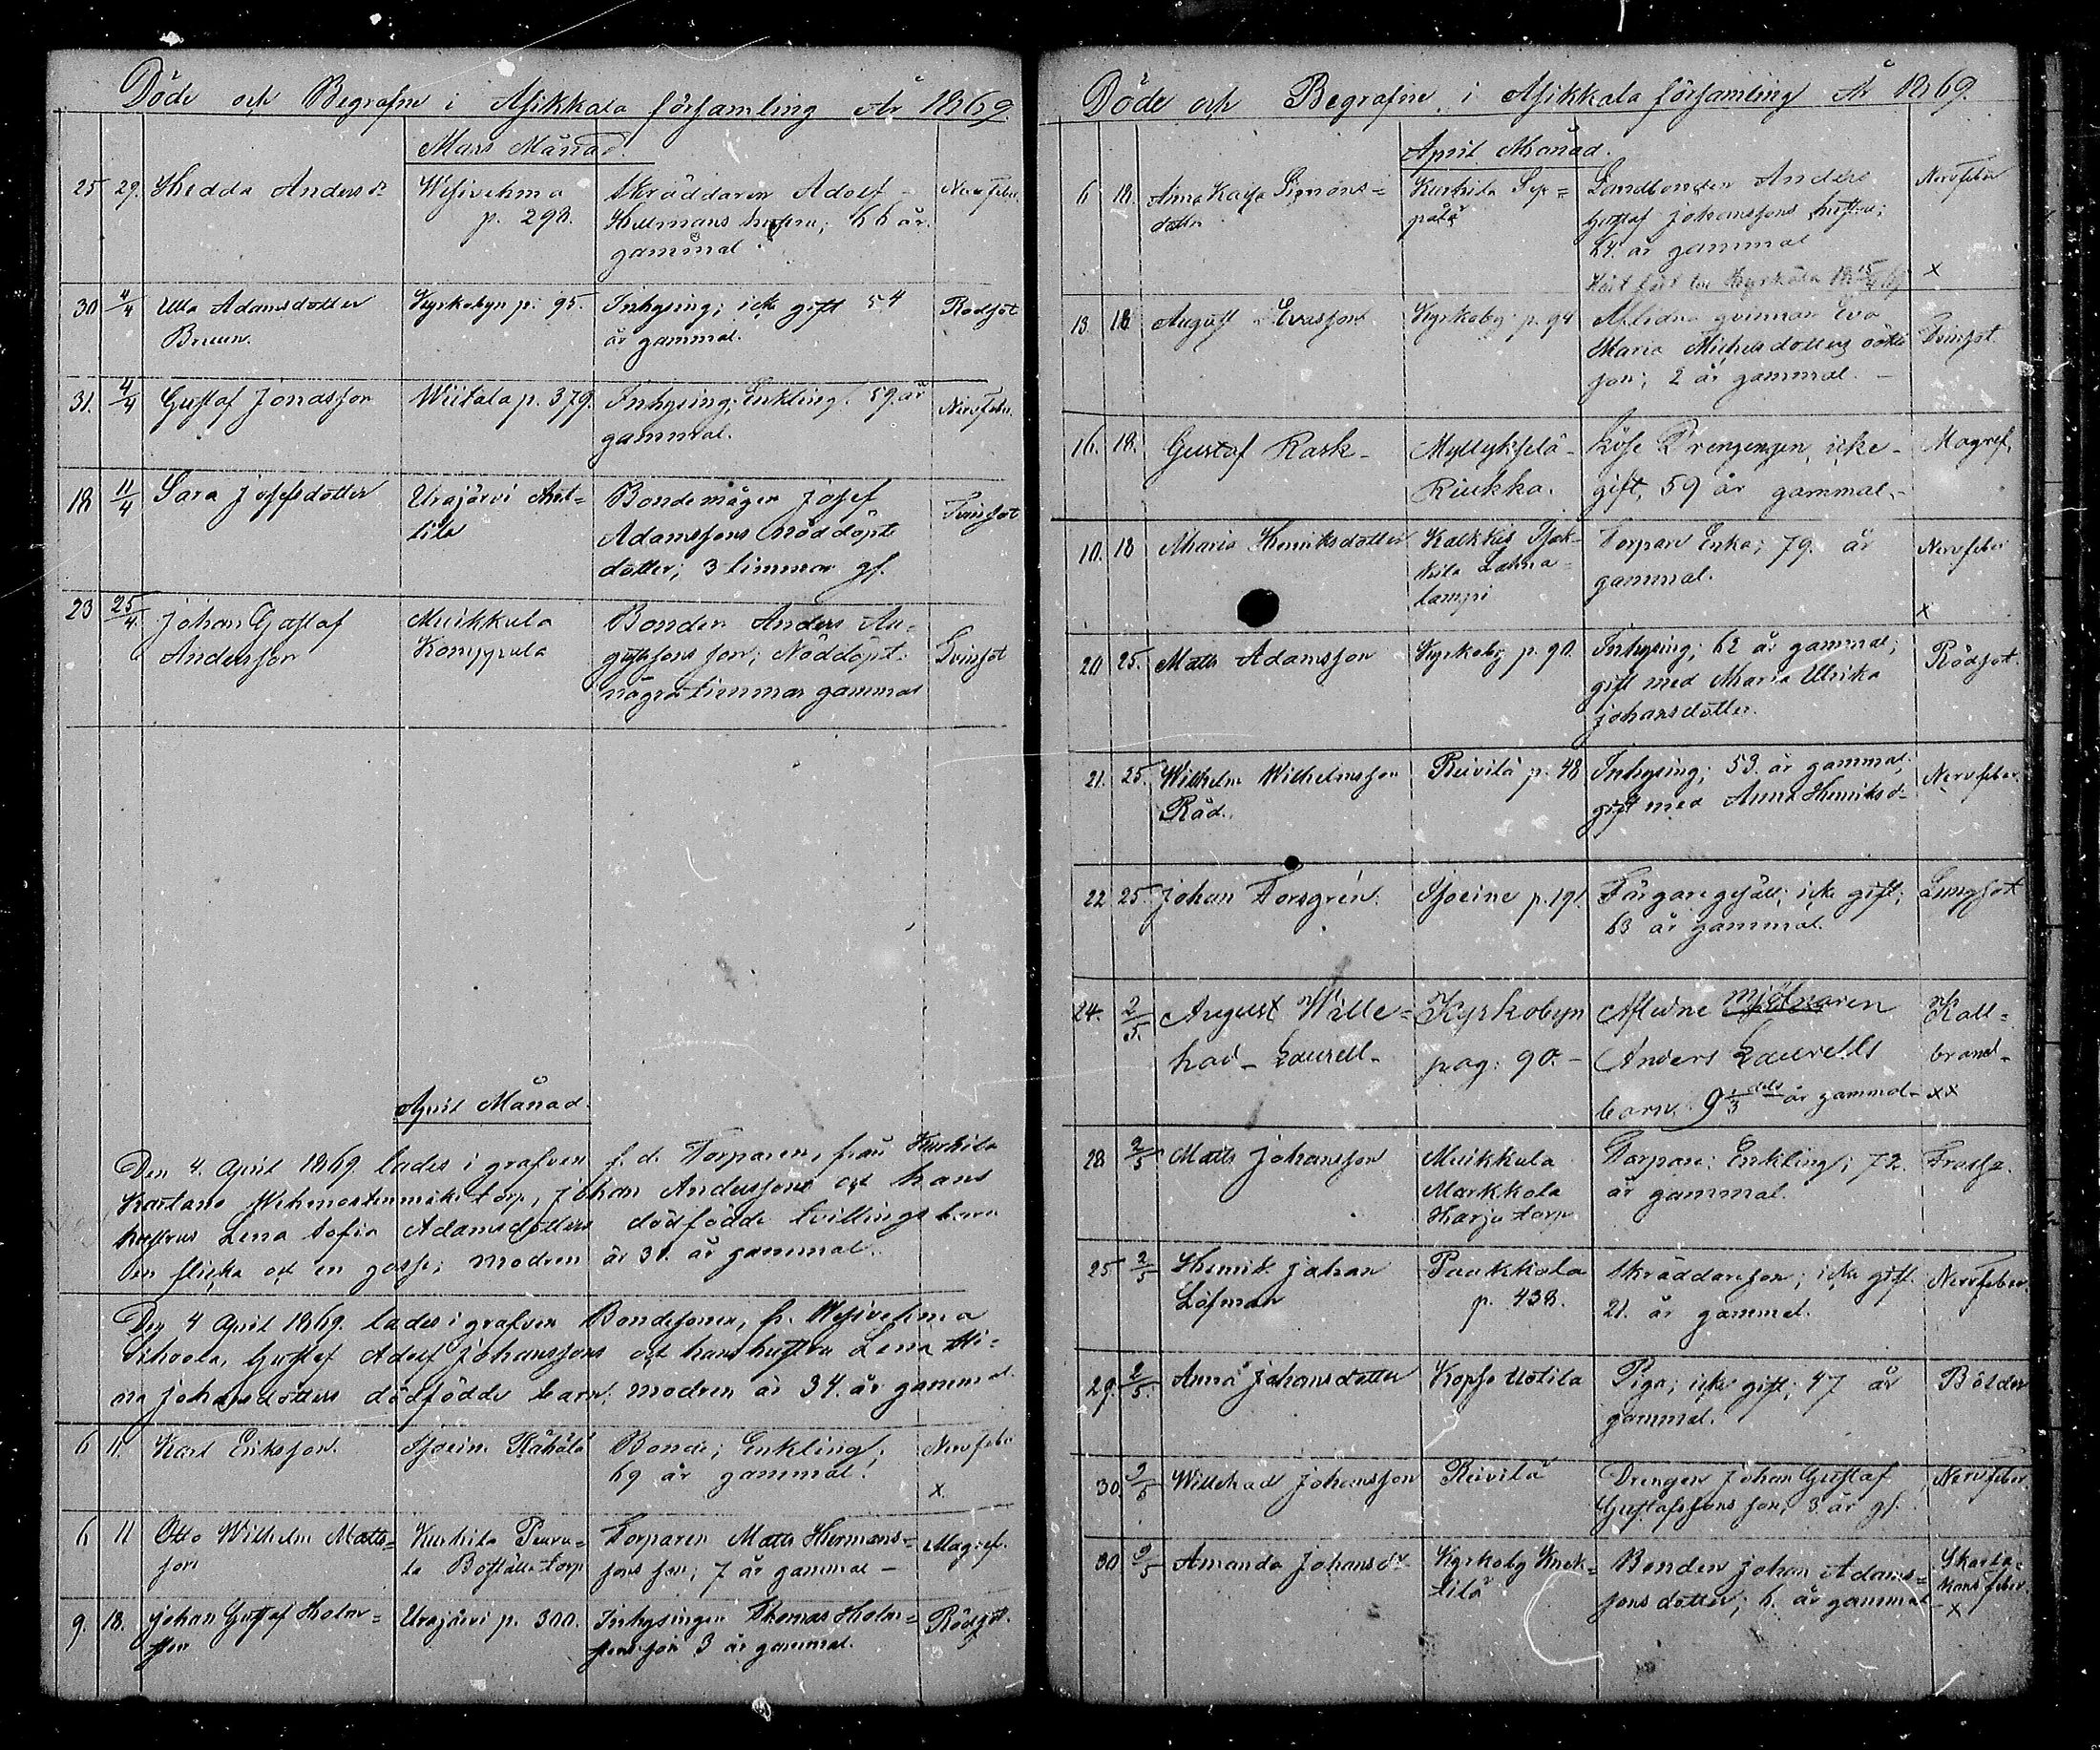 Döde och Begrafne i Asikkala församling År 1869.
Mars Månad.
25 29. Hedda Anders dr Wesivehma Skräddaren Adolf Nervfeber.
p. 298. Hellmans hustru; 66 år
gammal
30 4/4 Ulla Adamsdotter Kyrkobyn p. 95. Inhysing; icke gift 54 Rödsot
Bruun. år gammal.
31. 4/4 Gustaf Jonasson Wiitala p. 379. Inhysing; Enkling. 59. år Nervfeber.
gammal.
18 11/4 Sara Josefsdotter Urajärvi Ant= Bondemågen Josef
tila Adamssons Nöddöpt
dotter; 3 timmar gl.
23 25/4 Johan Gustaf Muikkula Bonden Anders Au=
Andersson Komppula gustssons son; Nöddöpt.
några timmar gammal
April Månad.
Den 4. April 1869 lades i grafven f. d. Torparens från Kurhila
Kartano torp, Johan Anderssons och hans
hustrus Lena Sofia Adamsdotters dödfödde tvillingsbarn
en flicka och en gosse; modren är 31. år gammal.
Den 4 April 1869. lades i grafven Bondesonen, fr. Wesivehma
Gustaf Adolf Johanssons och hans hustru Lena Mi=
na Johansdotters dödfödde barn; modren är 34. år gammal
6 11. Karl Eriksson. Bonde; Enkling; Nervfeber
69 år gammal. x
6 11 Otto Wilhelm Matts= Kurhila Torparen Matts Hermans= Magref.
son Boställs torp sons son; 7 år gammal
9. 18. Johan Gustaf Holm= Urajärvi p. 300. Inhysingen Thomas Holm= Rödsot.
sten stens son 3 år gammal.
Döde och Begrafne i Asikkala församling År 1869.
April Månad.
6 18. Anna Kajsa Simons= Kurhila Sep= Landbonden Anders Nervfeber
dotter pälä Gustaf Johanssons hustru;
64. år gammal
x
13. 18 August Evasson Kyrkoby p. 94 Aflidna qvinnan Eva
Maria Michelsdotters oäkta
son; 2 år gammal.
16. 18. Gustaf Rask Myllykselä Löse Drengengen, icke Magref.
Riukka. gift, 59 år gammal.
10. 18 Maria Henriksdotter Kalkkis Torpare Enka; 79. år Nervfeber
gammal.
lampi x
20 25. Matts Adamsson Kyrkoby p. 90. Inhysing; 62 år gammal; Rödsot.
gift med Maria Ulrika
Johansdotter.
21. 25. Wilhelm Wilhelmsson Reivilä p. 48 Inhysing; 53. år gammal; Nervfeber.
Råd. gift med Anna Henriksd
22 25. Johan Forsgrén. p. 191. Färgaregesäll; icke gift; Lungsot
63 år gammal.
24. 2/5. August Wille= Kyrkobyn Aflidne Mjölnaren Kall=
had Laurell pag: 90. Anders Laurells brand
barn. 9 1/3 dels år gammal xx
28 2/5 Matts Johansson Muikkula Torpare; Enkling; 72.
Markkola år gammal.
Harju torp
25 2/5 Henrik Johan Paakkola Skräddareson; icke gift. Nervfeber.
Löfman p. 438. 21. år gammal.
29. 2/5. Anna Johansdotter Kopso Uotila Piga; icke gift; 47 år Bölder
gammal.
30. 9/5 Willehad Johansson Reivilä Drengen Johan Gustaf Nervfeber.
Gustafssons son, 3 år gl.
30 9/5 Amanda Johansdr Kyrkoby Knek= Bonden Johan Adams= Skarla=
tilä sons dotter; 6 år gammal kans feber.
x